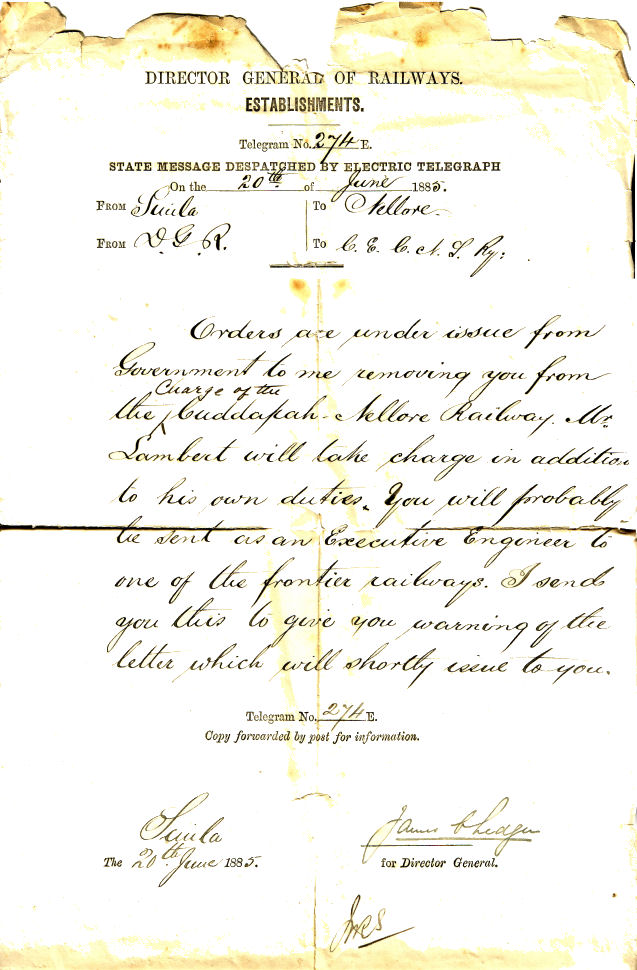 DIRECTOR GENERAL OF RAILWAYS.
ESTABLISHMENTS.
Telegram No. 274 E.
STATE MESSAGE DESPATCHED BY ELECTRIC TELEGRAPH
On the 20th of June 1885.
FROM Simla To Nellore.
FROM D. G. R. To C. E. C. N. S. Ry:
Orders are under issue from
Government to me removing you from
Charge of the
the Cuddapah-Nellore Railway. Mr.
Lambert will take charge in addition
to his own duties. You will probably
be sent as an Executive Engineer to
one of the frontier railways. I send
you this to give you warning of the
letter which will shortly issue to you.
Telegram No. 274 E.
Copy forwarded by post for information.
Simla
The 20th June 1885.
James
for Director General.